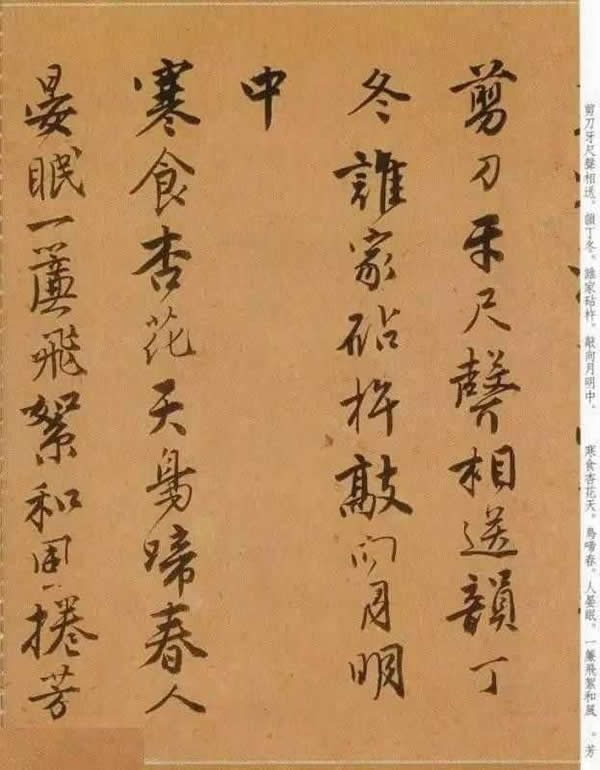 剪刀牙尺聲相送韻丁
冬誰家砧杵敲向月明
中
寒食杏花天鳥啼春人
晏眠一簾飛絮和風捲芳
剪刀牙尺聲相送。韻丁冬。誰家砧杵。敲向月明中。 寒食杏花天。鳥啼春。人晏眠。一簾飛絮和風 。芳